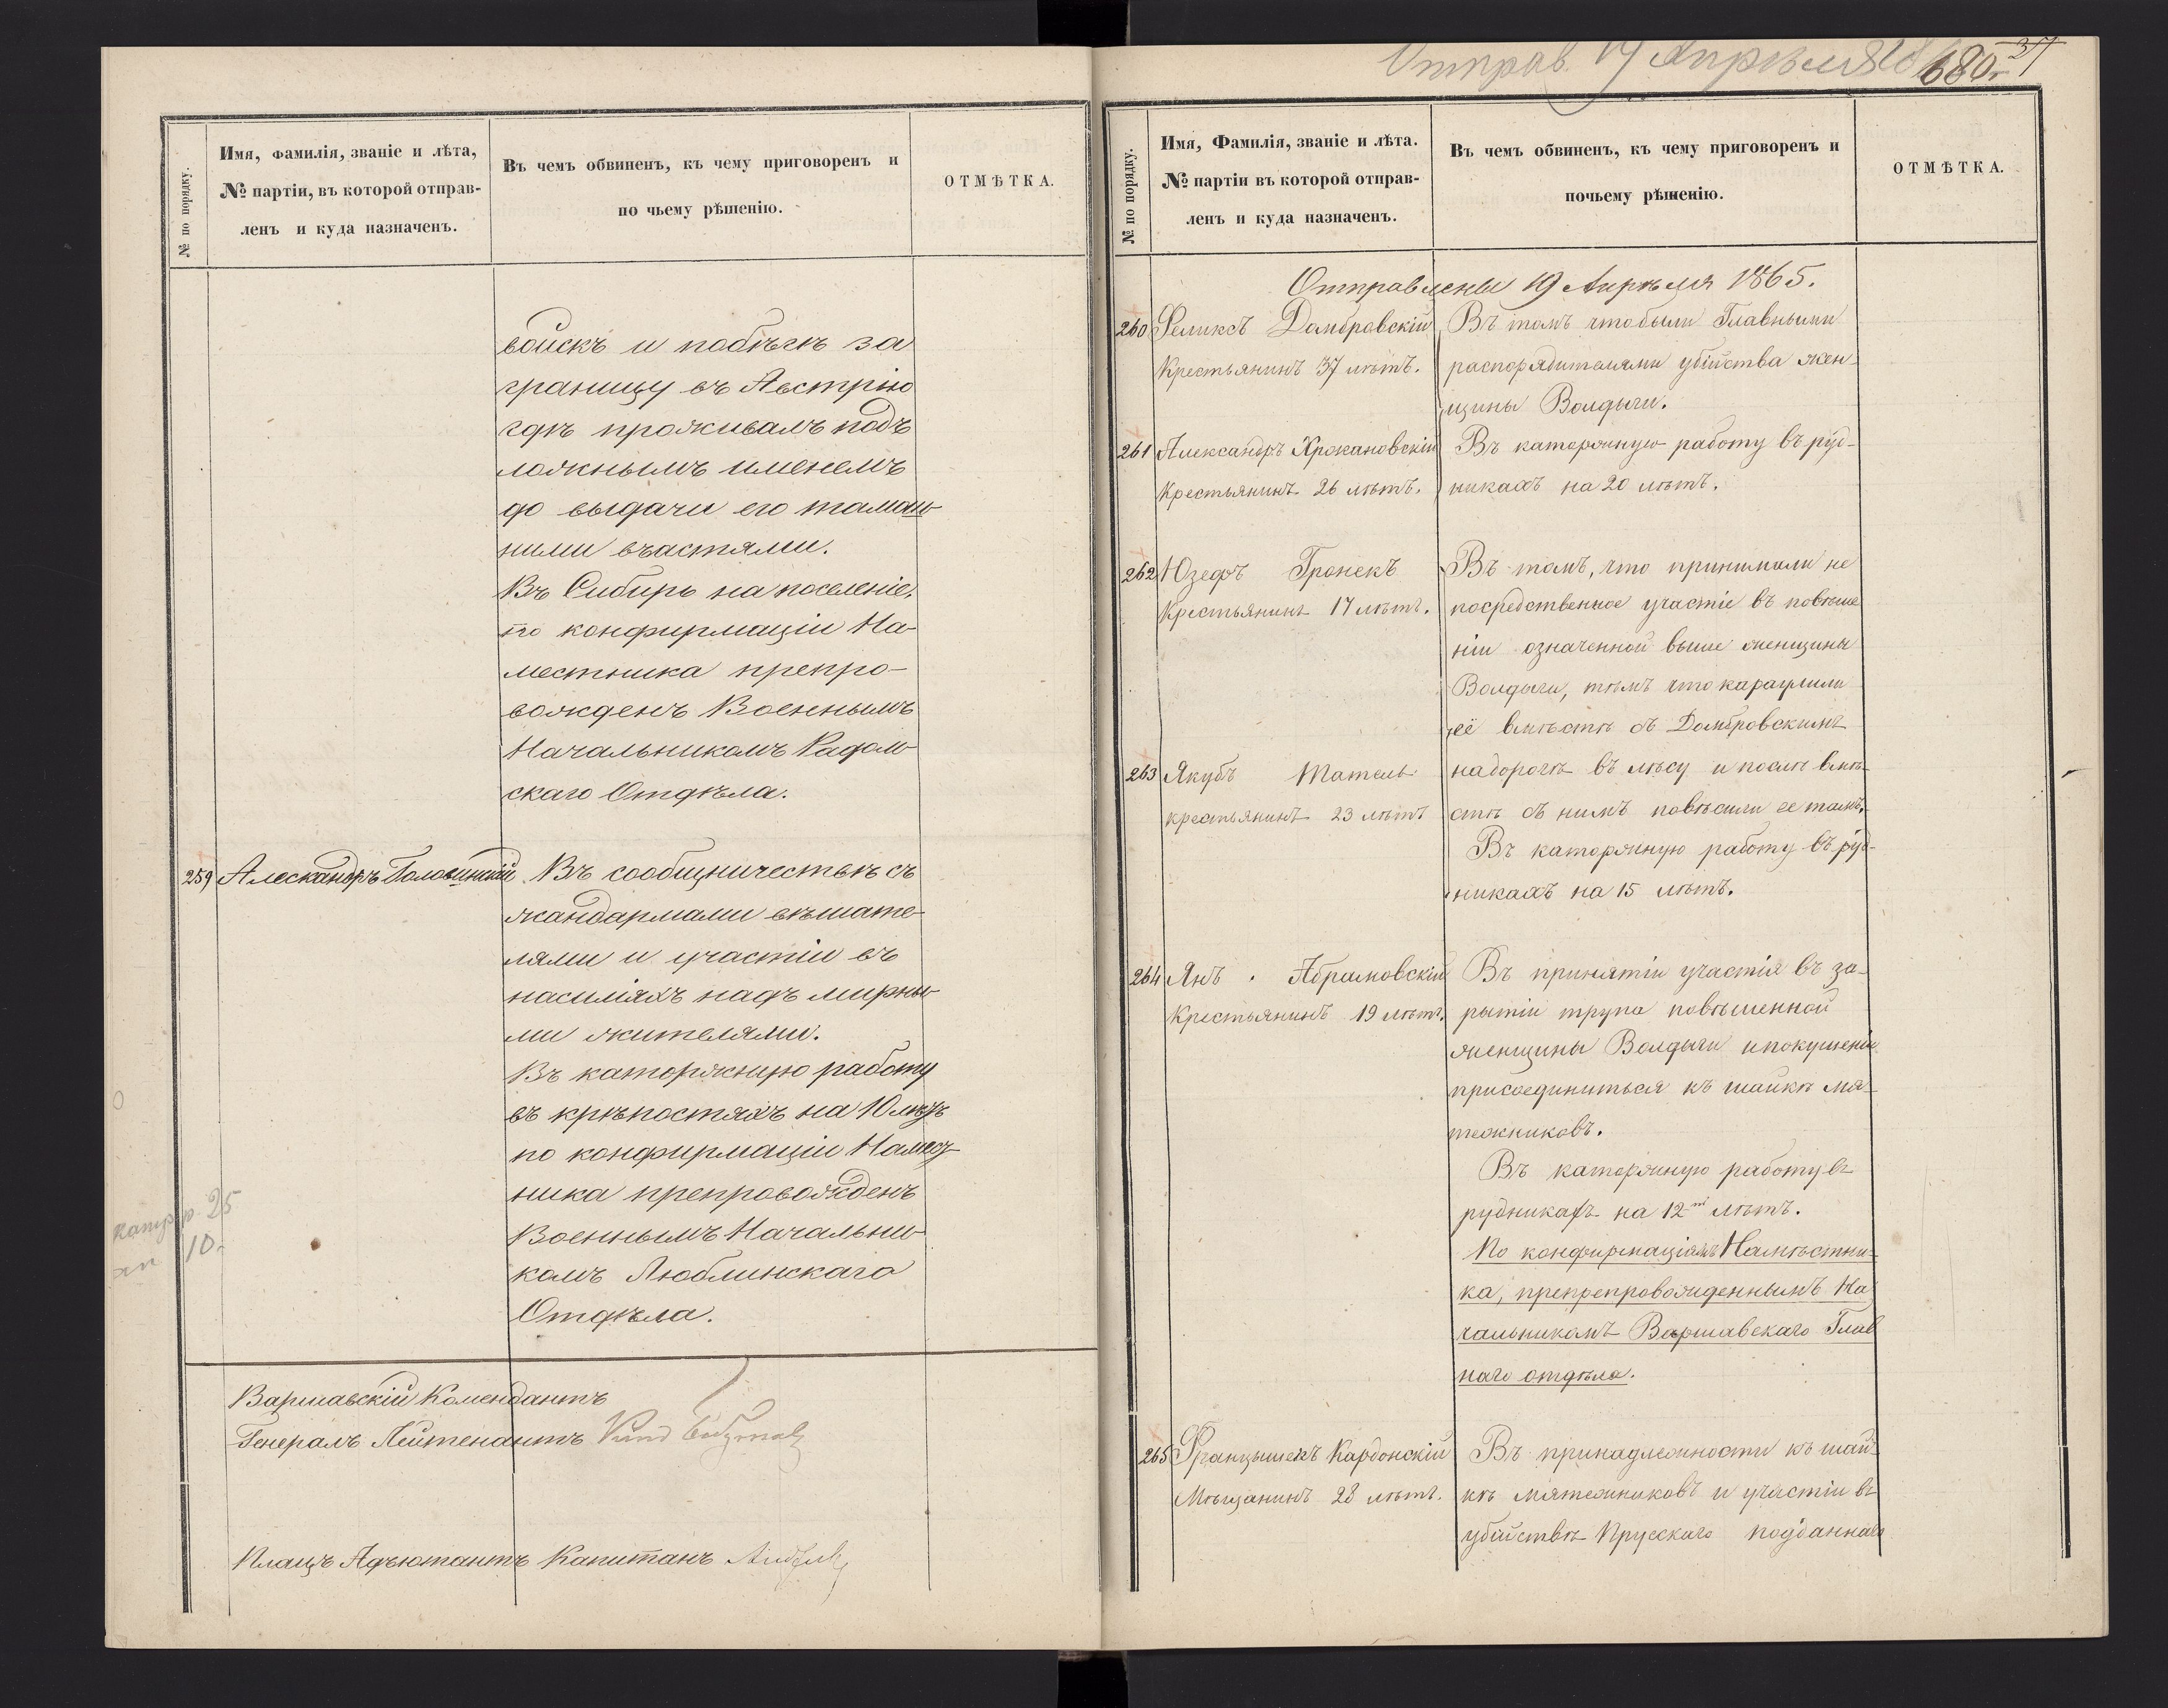 № по порядку.
Имя, фамилія, званіе и лѣта,
№ партіи, въ которой отправ-
ленъ и куда назначенъ.
Въ чемъ обвиненъ, къ чему приговоренъ и
по чьему рѣшенію.
ОТМѢТКА.
войскъ и побѣгѣ за
границу въ Австрію
гдѣ проживалъ подъ
ложнымъ именемъ
до выдачи его тамош-
ними властями.
Въ Сибирь на поселеніе,
по конфирмаціи На-
местника препро-
вожденъ Военнымъ
Начальникомъ Радом-
скаго Отдѣла.
259 Алескандръ Головинскій Въ сообщничествѣ съ
жандармами вѣшате-
лями и участіи въ
насиліяхъ надъ мирны-
ми жителями.
Въ каторжную работу
въ крѣпостяхъ на 10 лѣтъ
по конфирмаціи Намѣст-
ника препровожденъ
Военнымъ Начальни-
комъ Люблинскаго
Отдѣла.
25
10.
Варшавскій Комендантъ
Генералъ Лейтенантъ
Плацъ Адъютантъ Капитанъ
Отправ. 19 Апрѣля
680
37
№ по порядку.
Имя, Фамилія, званіе и лѣта.
№ партіи въ которой отправ-
ленъ и куда назначенъ.
Въ чемъ обвиненъ, къ чему приговоренъ и
почьему рѣшенію.
ОТМѢТКА.
Отправлены 19 Апрѣля 1865.
260 Феликсъ Домбравскій Въ томъ что были Главными
Крестьянинъ 37 лѣтъ. распорядителями убійства жен-
щины Волдыги.
261 Александръ Хрокановскій Въ каторжную работу въ руд-
Крестьянинъ 26 лѣтъ. никахъ на 20 лѣтъ.
262 Юзефъ Гронекъ Въ томъ, что принимали не
Крестьянинъ 17 лѣтъ. посредственное участіе въ повѣше
ніи означенной выше женщины
Волдыги, тѣмъ что караулили
её вмѣстѣ съ Домбровскимъ
263 Якубъ Матель надорогѣ въ лѣсу и послѣ вмѣ-
крестьянинъ 23 лѣтъ стѣ съ нимъ повѣсили ее тамъ.
Въ каторжную работу въ руд-
никахъ на 15 лѣтъ.
264 Янъ Абрамовскій Въ принятіи участія въ за-
Крестьянинъ 19 лѣтъ. рытіи трупа повѣшенной
женщины Волдыги и покушеніи
присоединиться къ шайкѣ мя-
тежниковъ.
Въ каторжную работу въ
рудникахъ на 12ть лѣтъ.
По конфирмаціямъ Намѣстни-
ка, препрепровожденнымъ На
чальникомъ Варшавскаго Глав
наго отдѣла.
265 Францышекъ Кардонскій Въ принадлежности къ шай-
Мѣщанинъ 28 лѣтъ. кѣ мятежниковъ и участіи въ
убійствѣ Прусскаго подданнаго